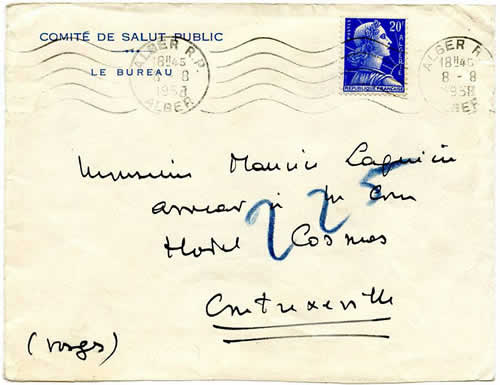 COMITÉ DE SALUT PUBLIC
***
LE BUREAU
ALGER R.P.
18H45
8 - 8
1958
ALGER
20F
POSTES
ALGERIE
REPUBLIQUE FRANCAISE
ALGER R.P.
18H45
8 - 8
1958
ALGER
Monsieur Maurice
225
Hotel Cosmos
Contrexeville
(Vosges)